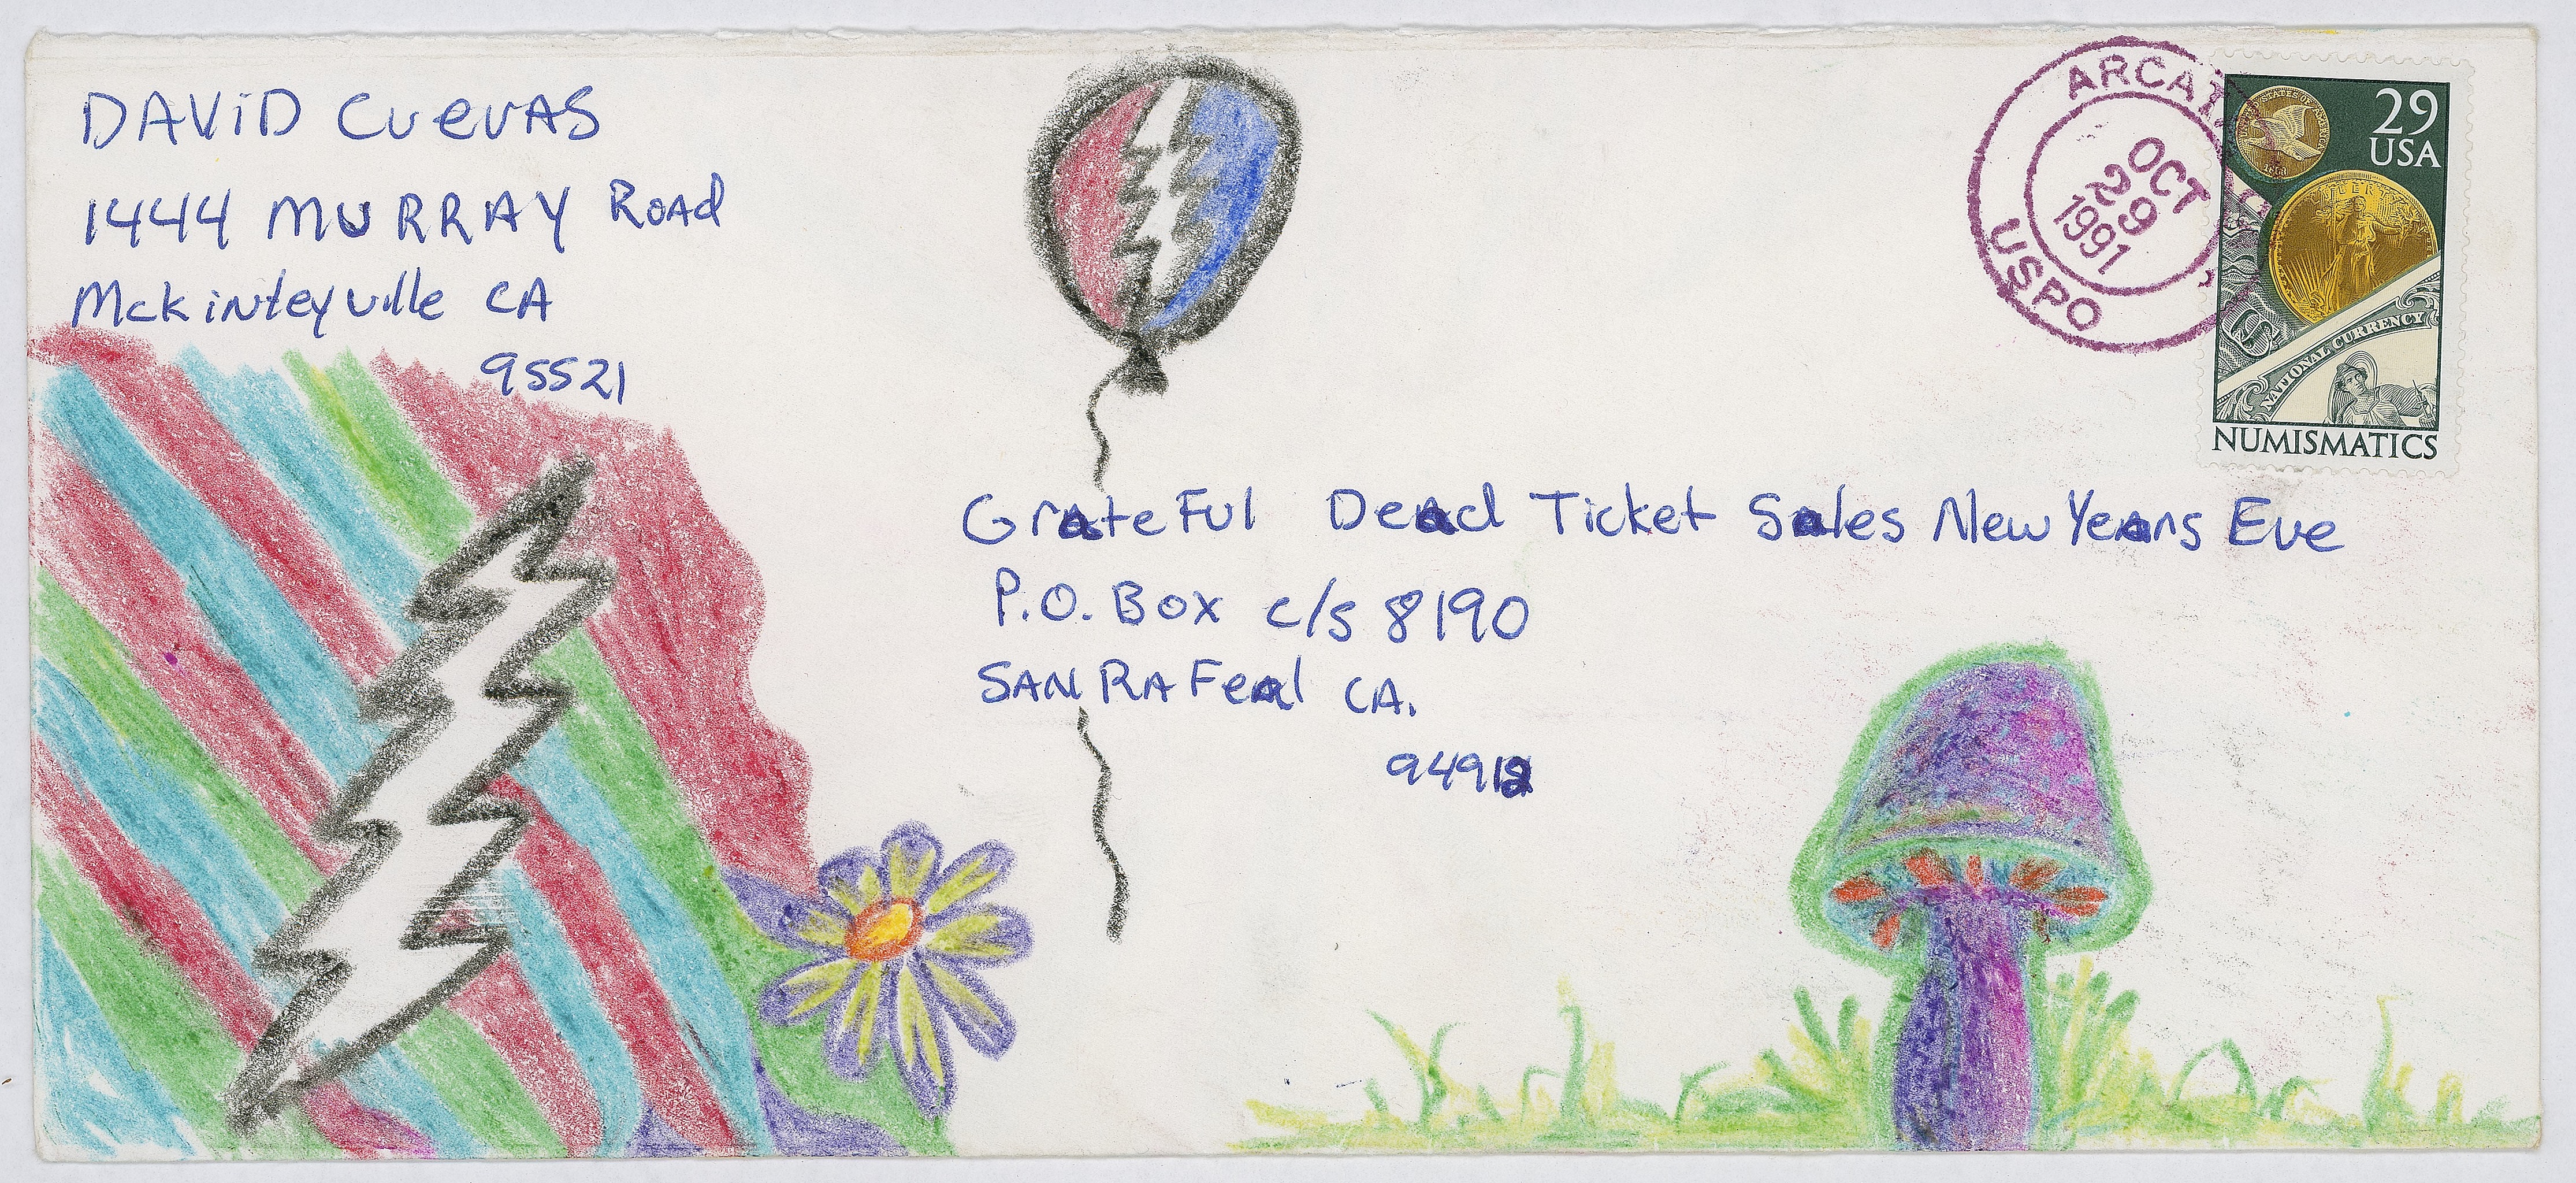 DAVID CUEVAS
1444 MURRAY ROAD
McKinleyville CA
95521
GrateFul Dead Ticket Sales New Years Eve
P.O. Box c/s 8190
SAN RAFeal CA.
94912
ARCATA
OCT
29
1991
USPO
UNITED STATES OF AMERICA
29
USA
LIBERTY
NATIONAL CURRENCY
NUMISMATICS